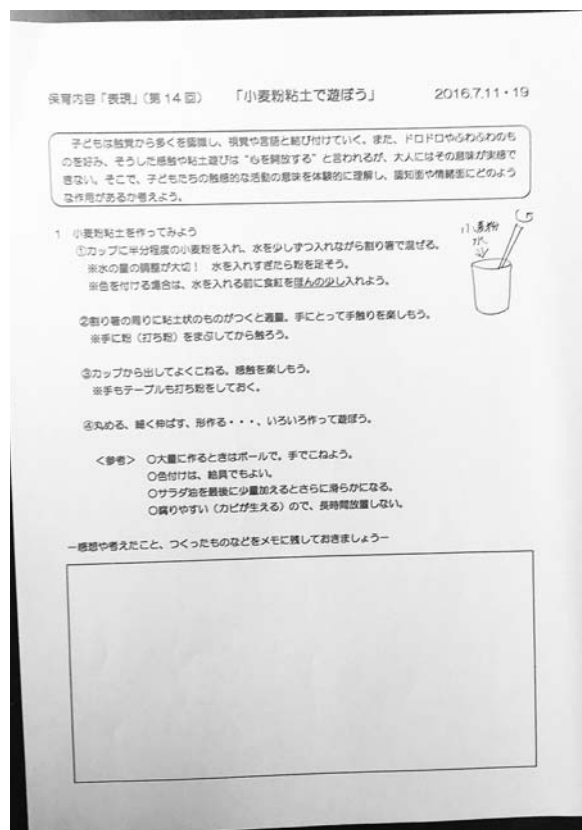 保育内容「表現」(第14回) 「小麦粉粘土で遊ぼう」 2016.7.11・19
子どもは触覚から多くを認識し、視覚や言語と結び付けていく。また、ドロドロやふわふわのも
のを好み、そうした感触や粘土遊びは“心を開放する”と言われるが、大人にはその意味が実感で
きない。そこで、子どもたちの触感的な活動の意味を体験的に理解し、認知面や情緒面にどのよう
な作用があるか考えよう。
1 小麦粉粘土を作ってみよう
小麦粉
水
①カップに半分程度の小麦粉を入れ、水を少しずつ入れながら割り箸で混ぜる。
※水の量の調整が大切! 水を入れすぎたら粉を足そう。
※色を付ける場合は、水を入れる前に食紅をほんの少し入れよう。
②割り箸の周りに粘土状のものがつくと適量。手にとって手触りを楽しもう。
※手に粉(打ち粉)をまぶしてから触ろう。
③カップから出してよくこねる。感触を楽しもう。
※手もテーブルも打ち粉をしておく。
④丸める、細く伸ばす、形作る・・・、いろいろ作って遊ぼう。
<参考> ○大量に作るときはボールで。手でこねよう。
○色付けは、絵具でもよい。
○サラダ油を最後に少量加えるとさらに滑らかになる。
○腐りやすい(カビが生える)ので、長時間放置しない。
ー感想や考えたこと、つくったものなどをメモに残しておきましょうー